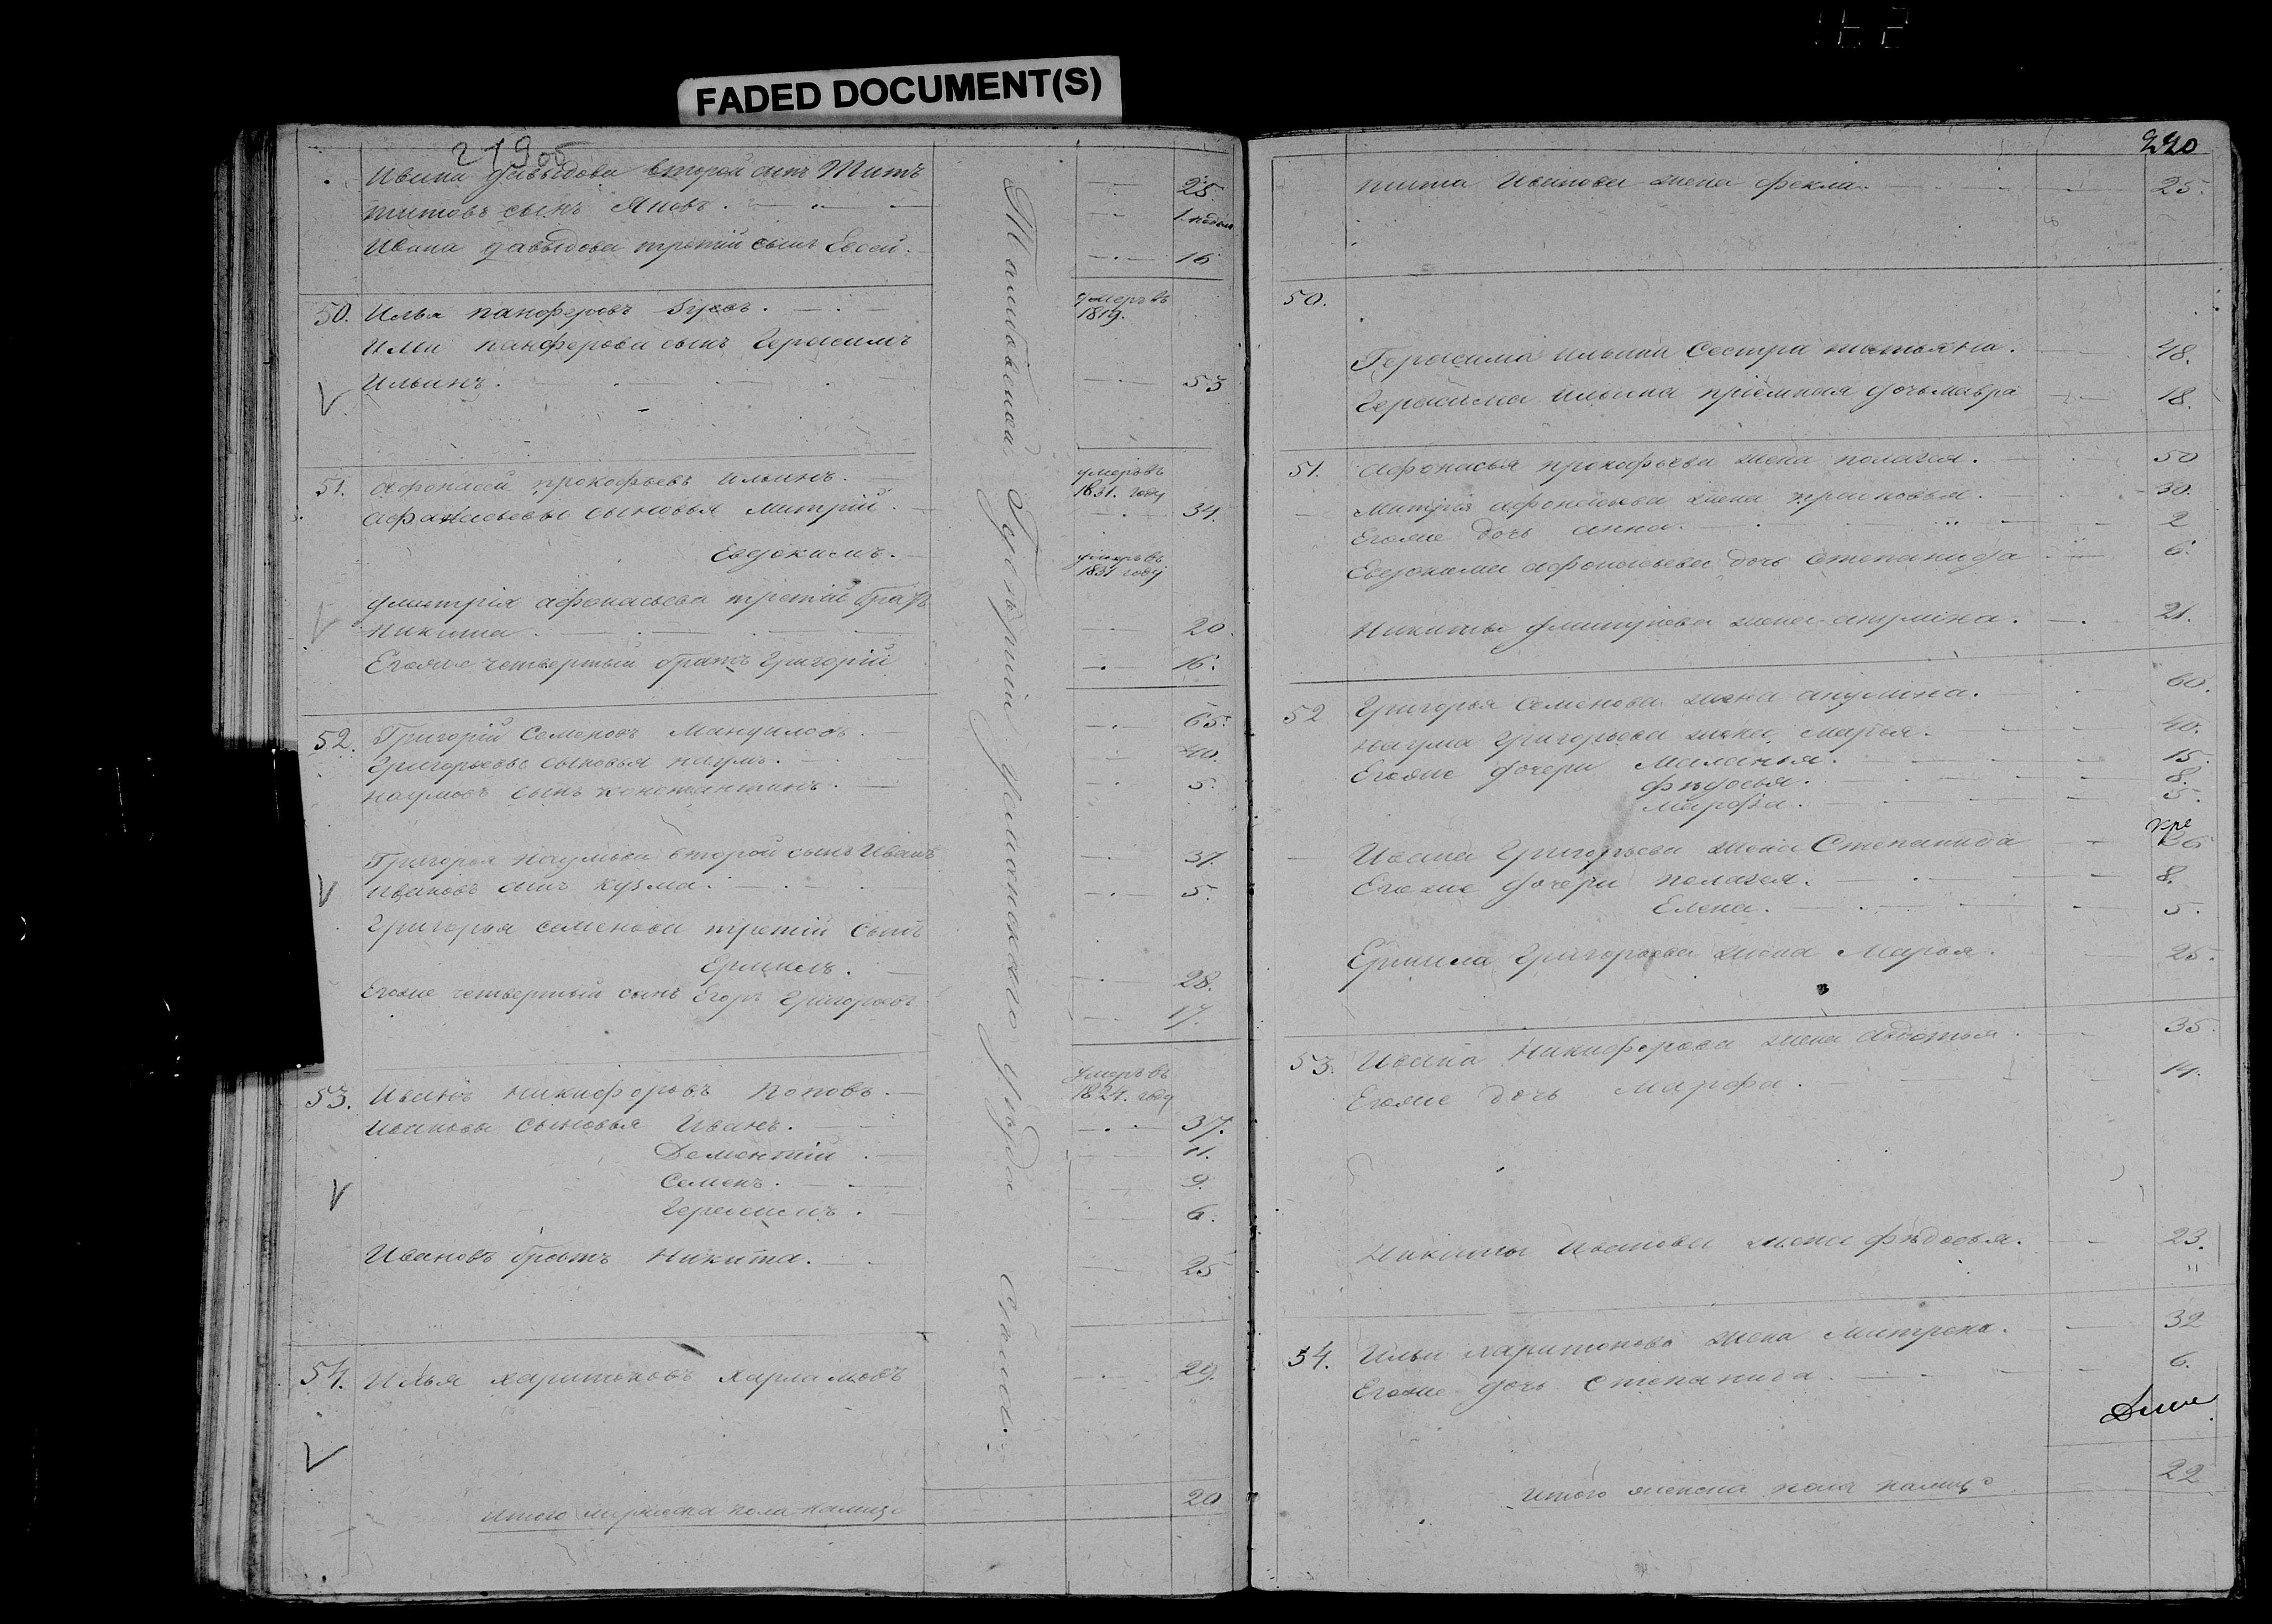 FADED DOCUMENT(S)
219об
Ивана Давыдова второй сынъ Титъ 25.
Титовъ сынъ Яковъ. 1. недел
Ивана Давыдова третий сынъ Евсей. 16
50. Илья Панферовъ умеръ въ 1819.
Ильи Панферова сынъ Герасимъ
Ильинъ. 53
51. Афонасей Прокофьевъ Ильинъ. умеръ въ 1831. году
Афанасьевы сыновья Митрій. 34.
Евдокимъ. умеръ въ 1831 году
Дмитрія Афонасьева третій братъ
Никита. 20.
Егоже четвертый братъ Григорій 16.
52. Григорій Семеновъ 65.
Григорьевы сыновья Наумъ. 40.
Наумовъ сынъ Константинъ. 5.
Григорья Наумова второй сынъ Иванъ 37.
Ивановъ сынъ Кузма. 5.
Григорья Семенова третій сынъ
Ермилъ. 28.
Егоже четвертый сынъ Егоръ Григорьевъ 17.
53. Иванъ Никифоровъ Поповъ. умеръ въ 1824. году
Ивановы сыновья Иванъ. 37.
Дементій. 11.
Семенъ. 9.
Герасимъ. 6.
Ивановъ братъ Никита. 25
54. Илья Харитоновъ Харламовъ 29.
Итого мужеска пола налицо 20
Тамбовской Губерніи уезда
220
Тита Иванова жена Фекла. 25.
50.
Герасима Ильина сестра Татьяна. 48.
Герасима Ильина пріемная дочь Мавра 18.
51. Афонасья Прокофьева жена Полагея. 50
Митрія Афонасьева жена Прасковья. 30.
Егоже дочь Анна. 2
Евдокима Афонасьева дочь Степанида 6.
Никиты жена Акулина. 21.
52 Григорья Семенова жена Акулина. 60.
Наума Григорьева жена Марья. 40.
Егоже дочери Маланья. 15.
Фѣдосья. 8.
Марфа. 5.
Ивана Григорьева жена Степанида 36
Егоже дочери Пелагея. 8.
Елена. 5.
Ермила Григорьева жена Марья. 25.
53. Ивана Никифорова жена Авдотья. 35.
Егоже дочь Марфа. 14.
Никиты Иванова жена Фѣдосья. 23.
54. Ильи Харитонова жена Матрена. 32
Егоже дочь Степанида. 6.
Итого женска пола налицо 22